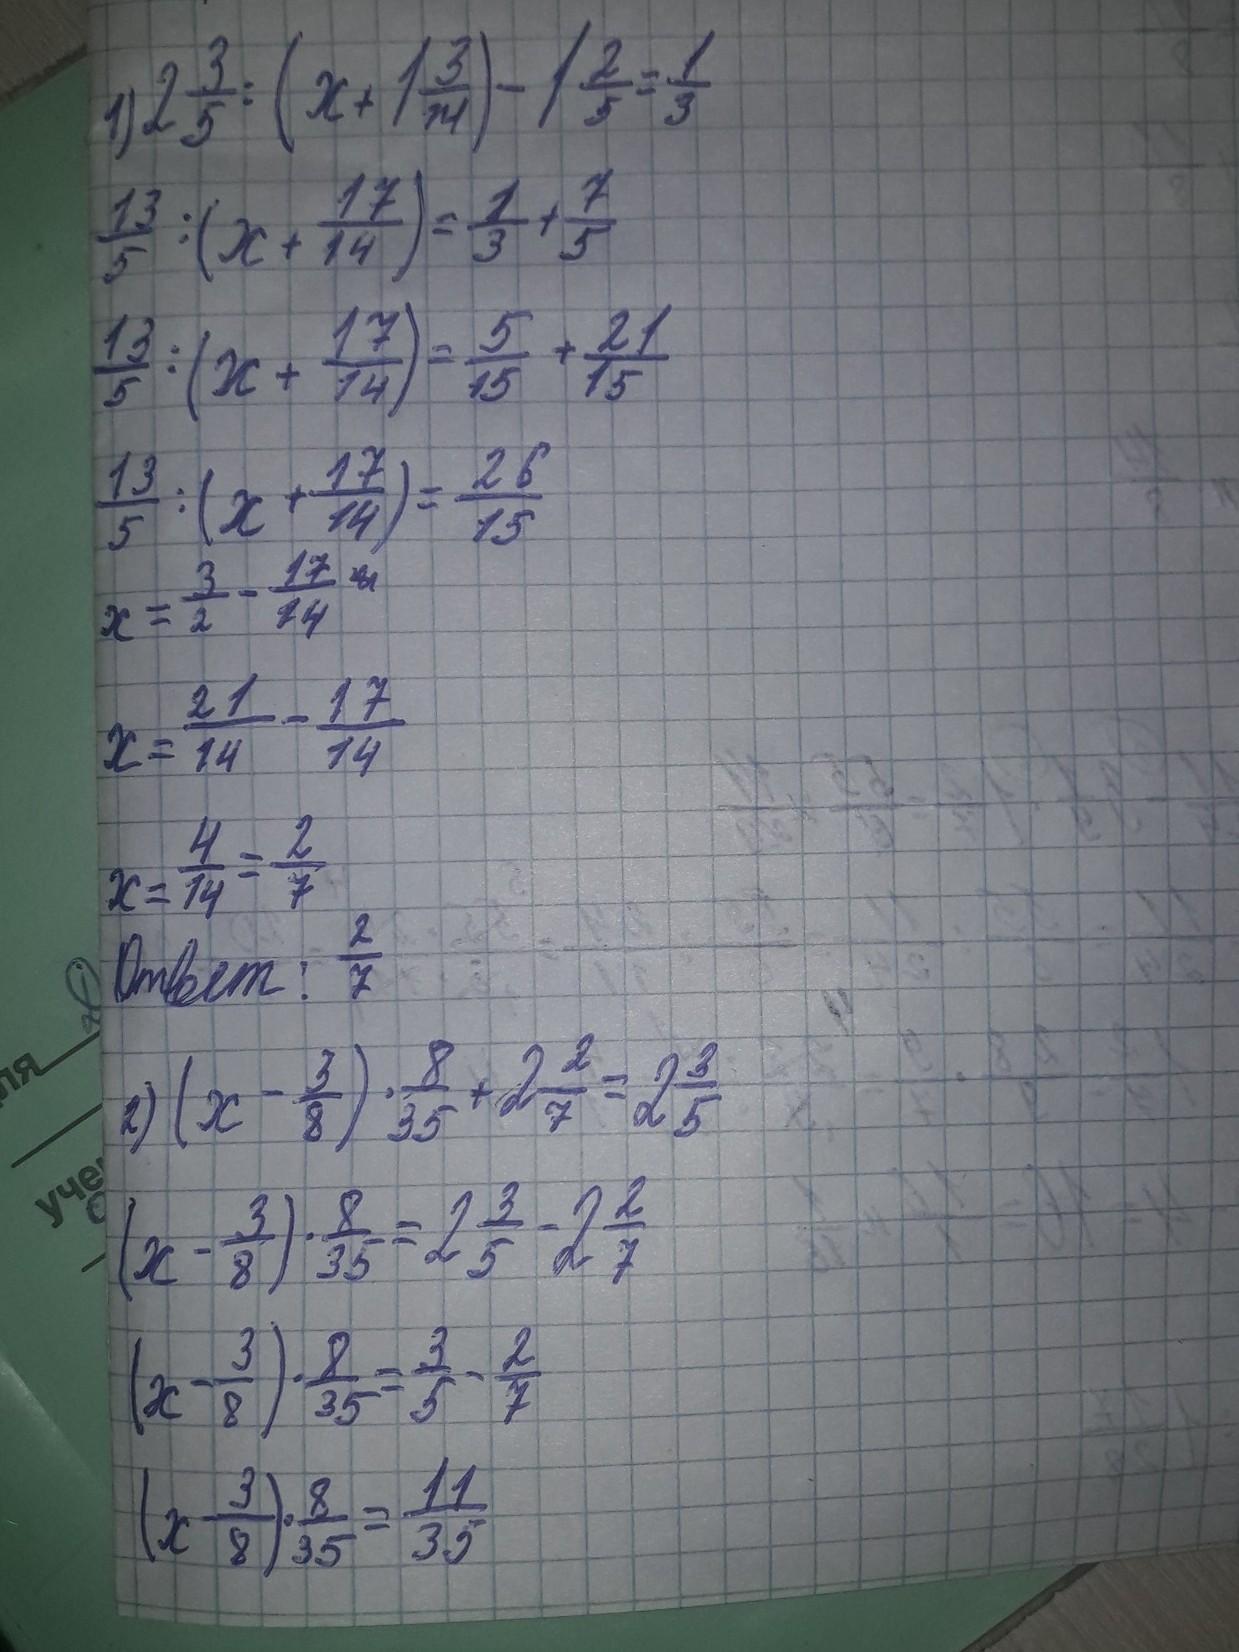 1) 2 3/5 : (x + 1 3/14) - 1 2/5 = 1/3
13/5 : (x + 17/14) = 1/3 + 7/5
13/5 : (x + 17/14) = 5/15 + 21/15
13/5 : (x + 17/14) = 26/15
x = 3/2 - 17/14
x = 21/14 - 17/14
x = 4/14 = 2/7
Ответ: 2/7
2) (x - 3/8) · 8/35 + 2 2/7 = 2 3/5
(x - 3/8) · 8/35 = 2 3/5 - 2 2/7
(x - 3/8) · 8/35 = 3/5 - 2/7
(x - 3/8) · 8/35 = 11/35